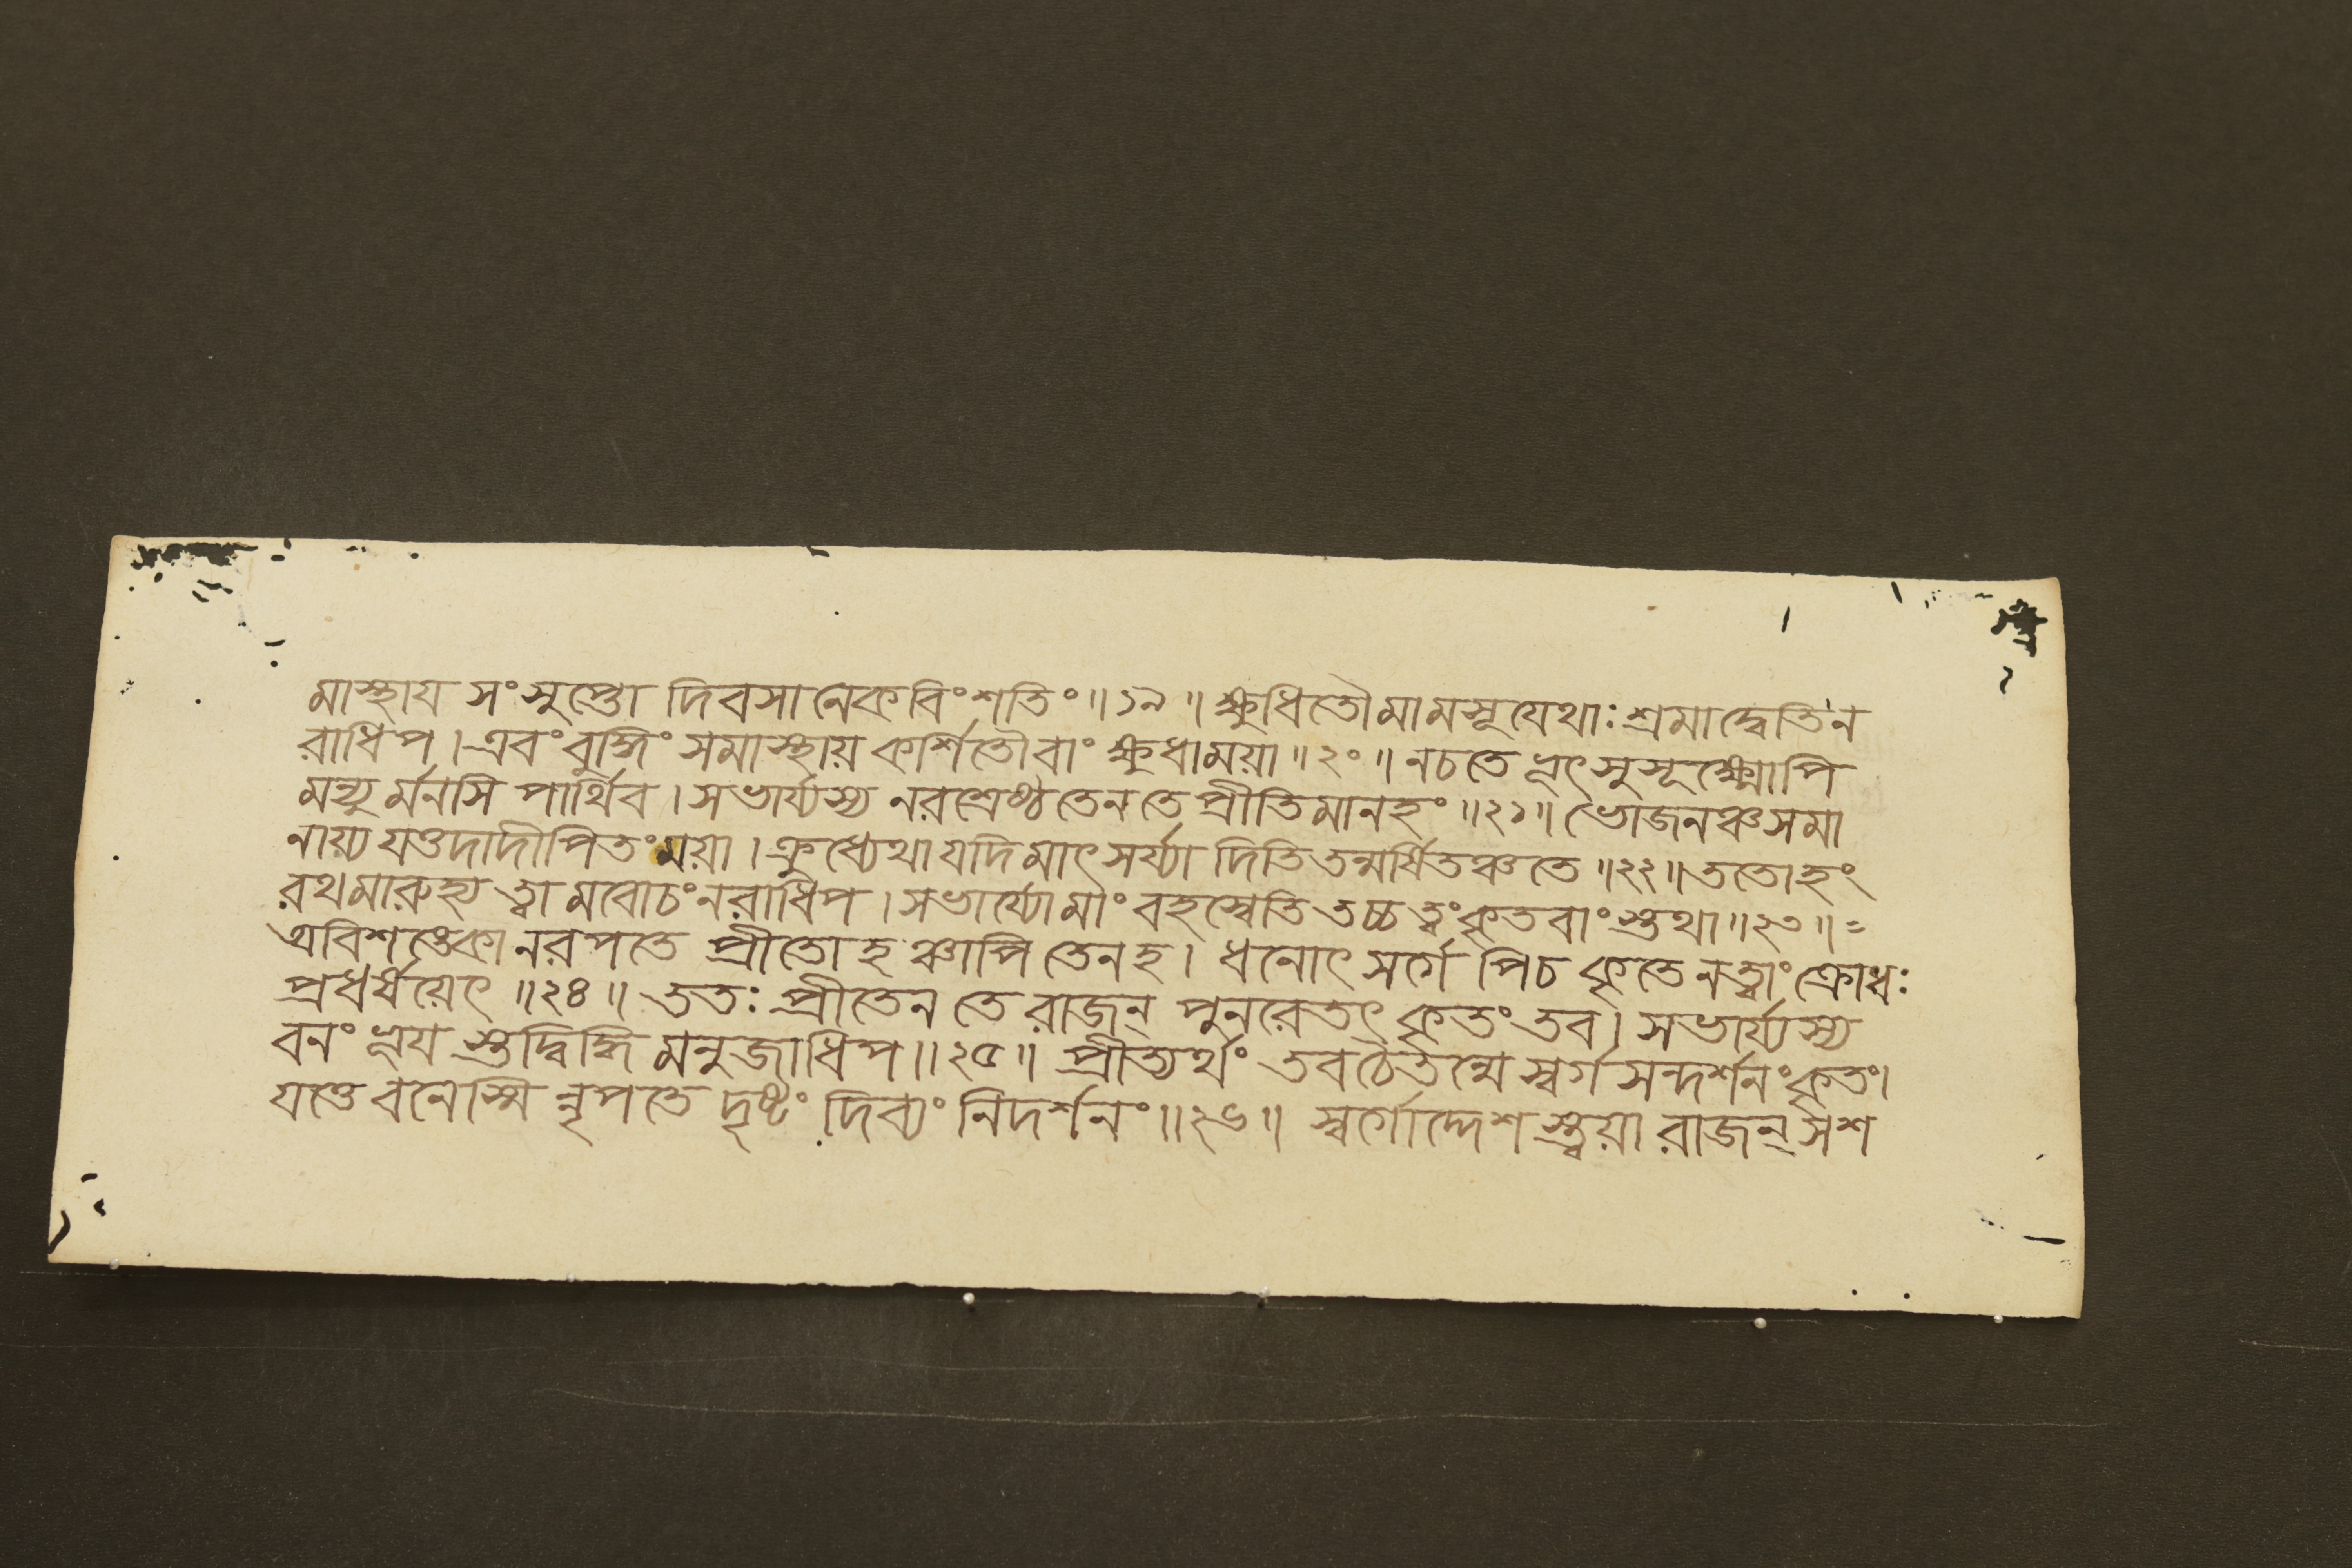 মাস্থায সংসুপ্তো দিবসানেকবিংশতিং॥১৯॥ ক্ষুধিতৌমামসূযেথাঃ শ্রমাদ্বেতিন
রাধিপ।এবংবুদ্ধিং সমাস্থায় কর্শিতৌবাং ক্ষুধাময়া॥২০॥ নচতে ভূৎসুসূক্ষ্মোপি
মন্যু র্মনসি পার্থিব। সভার্য্যস্য নরশ্রেষ্ঠ তেনতে প্রীতিমানহং॥২১॥ ভোজনঞ্চসমা
নায়্য যত্তদাদীপিতংময়া।ক্রুধ্যেথাযদিমাৎসর্য্যা দিতিতন্মর্ষিতঞ্চতে॥২২॥ততোহং
রথমারুহ্য ত্বামবোচংনরাধিপ। সভার্য্যোমাং বহস্বেতি তচ্চত্বংকৃতবাংস্তথা॥২৩॥=
অবিশঙ্কোনরপতে প্রীতোহঞ্চাপি তেনহ। ধনোৎসর্গেপিচ কৃতে নত্বাংক্রোধঃ
প্রধর্ষয়েৎ॥২৪॥ ততঃ প্রীতেন তে রাজন্ পুনরেতৎ কৃতংতব। সভার্য্যস্য
বনংভূয স্তদ্বিদ্ধি মনুজাধিপ॥২৫॥ প্রীত্যর্থং তবচৈতন্মে স্বর্গসন্দর্শনংকৃতং।
যত্তে বনেস্মি ন্নৃপতে দৃষ্টং দিব্যং নিদর্শনং॥২৬॥ স্বর্গোদ্দেশ স্ত্বয়া রাজন্ সশ